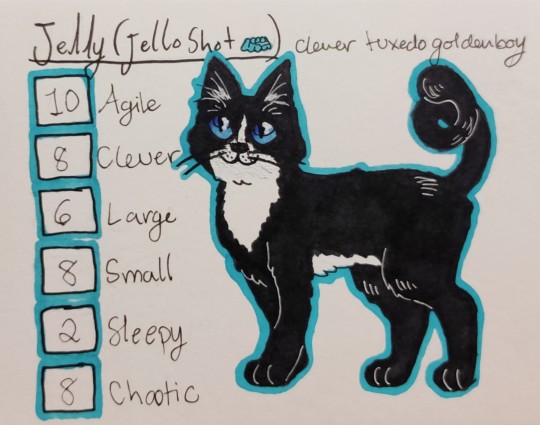 Jelly (Jello Shot) clever tuxedo goldenboy
10 Agile
8 Clever
6 Large
8 Small
2 Sleepy
8 Chaotic